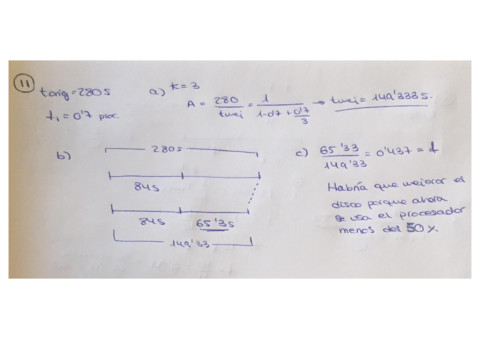 11
torig = 280 s
f₁ = 0'7 proc.
a) k = 3
A = 280 / tmej = 1 / (1-0'7 + 0'7/3) → tmej = 149'333 s.
b)
280 s
84 s
84 s 65'3 s
149'33
c) 65'33 / 149'33 = 0'437 = f
Habría que mejorar el
disco porque ahora
se usa el procesador
menos del 50 %.